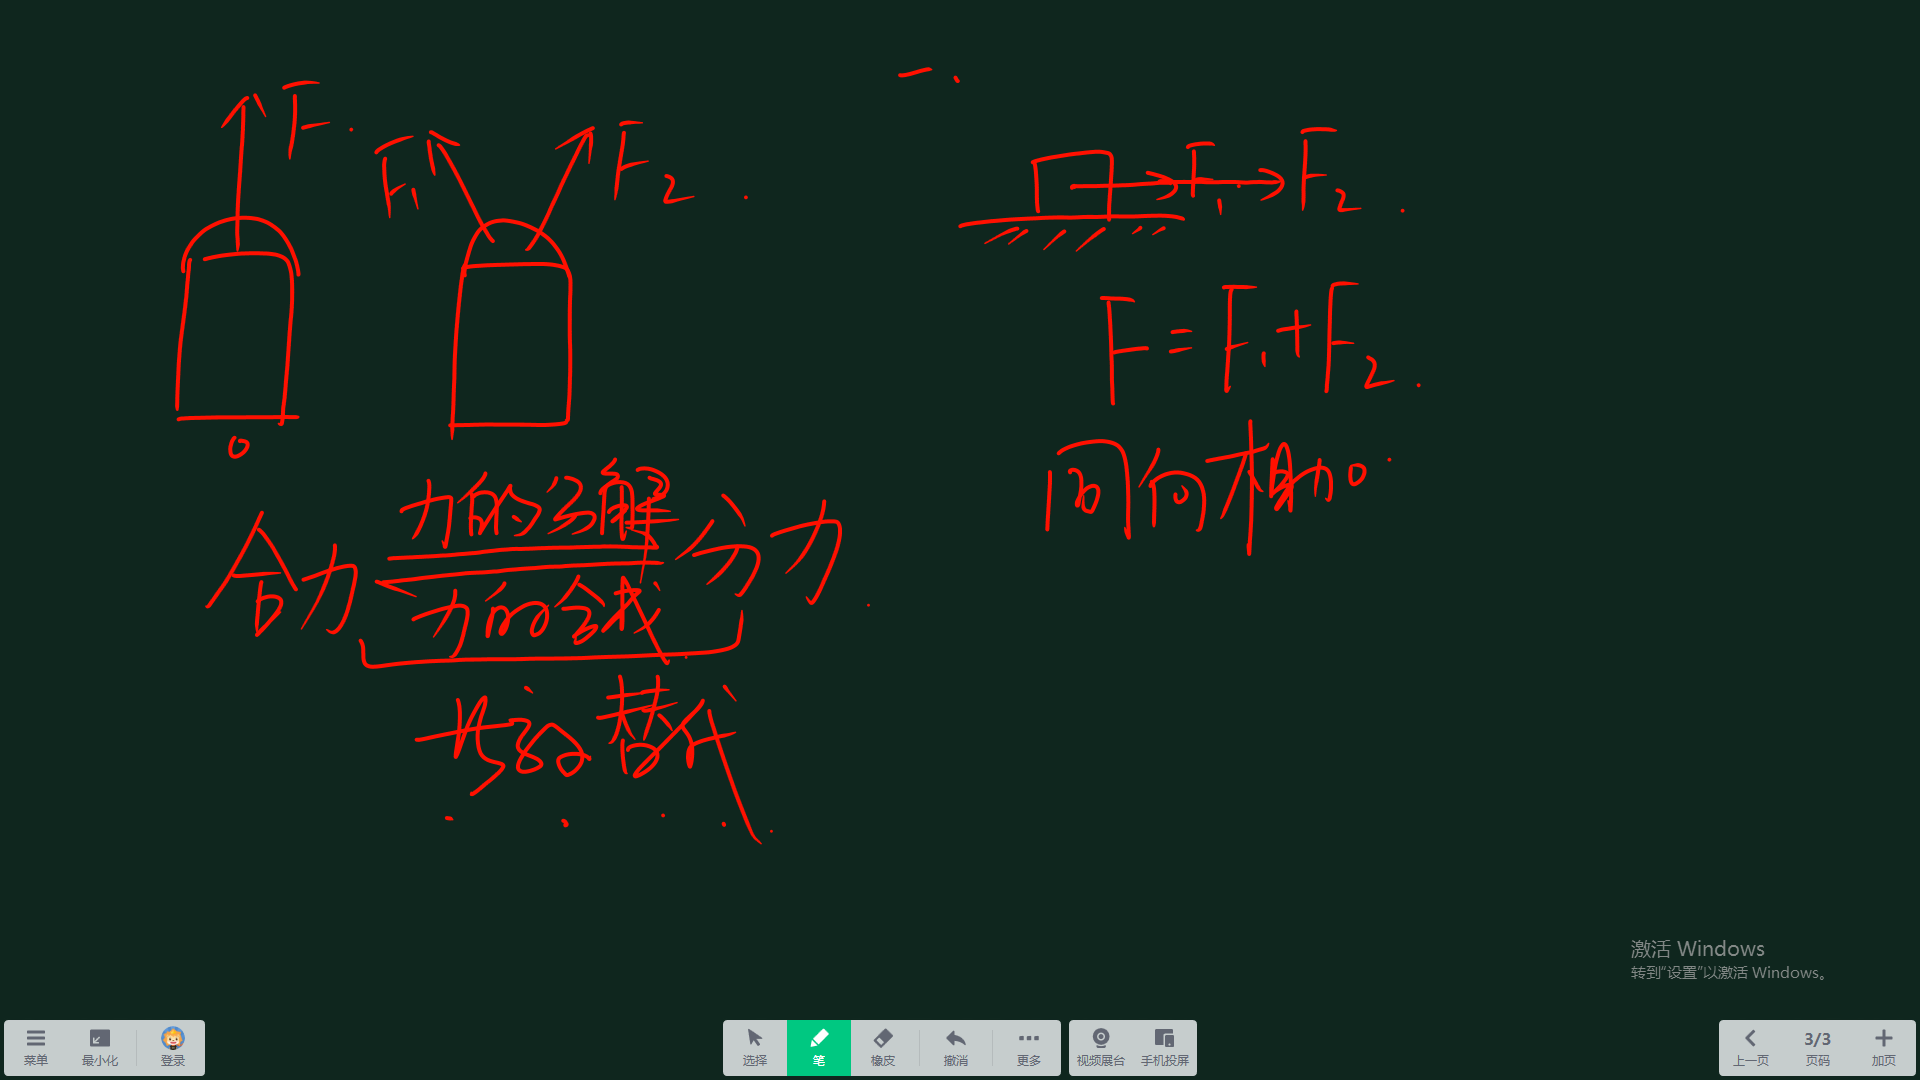 F.
F₁
F₂.
力的分解
合力
分力.
力的合成
等效替代
一.
F₁
F₂.
F=F₁+F₂.
同向相加。
激活 Windows
转到“设置”以激活 Windows。
菜单
最小化
登录
选择
笔
橡皮
撤消
更多
视频展台
手机投屏
上一页
3/3
页码
加页